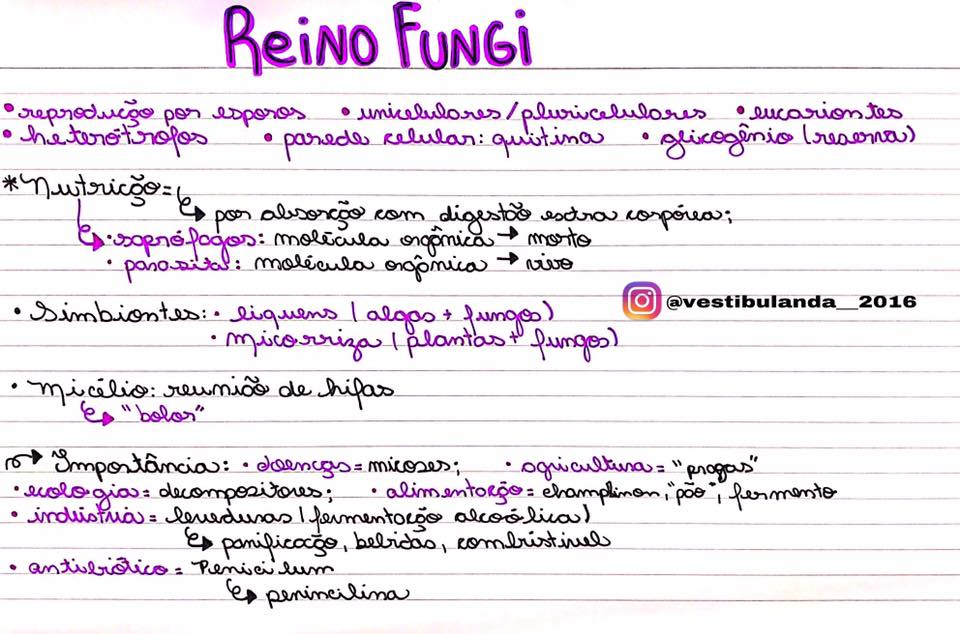 Reino Fungi
• reprodução por esporos • unicelulares/pluricelulares • eucariontes
• heterótrofos • parede celular: quitina • glicogênio (reserva)
* Nutrição =
↳ por absorção com digestão extra corpórea;
↳ • saprófagos: molécula orgânica → morto
• parasita: molécula orgânica → vivo
@vestibulanda__2016
• Simbiontes: • liquens (algas + fungos)
• micorriza (plantas + fungos)
• Micélio: reunião de hifas
↳ "bolor"
→ Importância: • doenças = micoses; • agricultura = "pragas"
• ecologia = decompositores; • alimentação = champlinon, "pão", fermento
• indústria = leveduras (fermentação alcoólica)
↳ panificação, bebidas, combristivel
• antibiótico = Penicilum
↳ penincilina